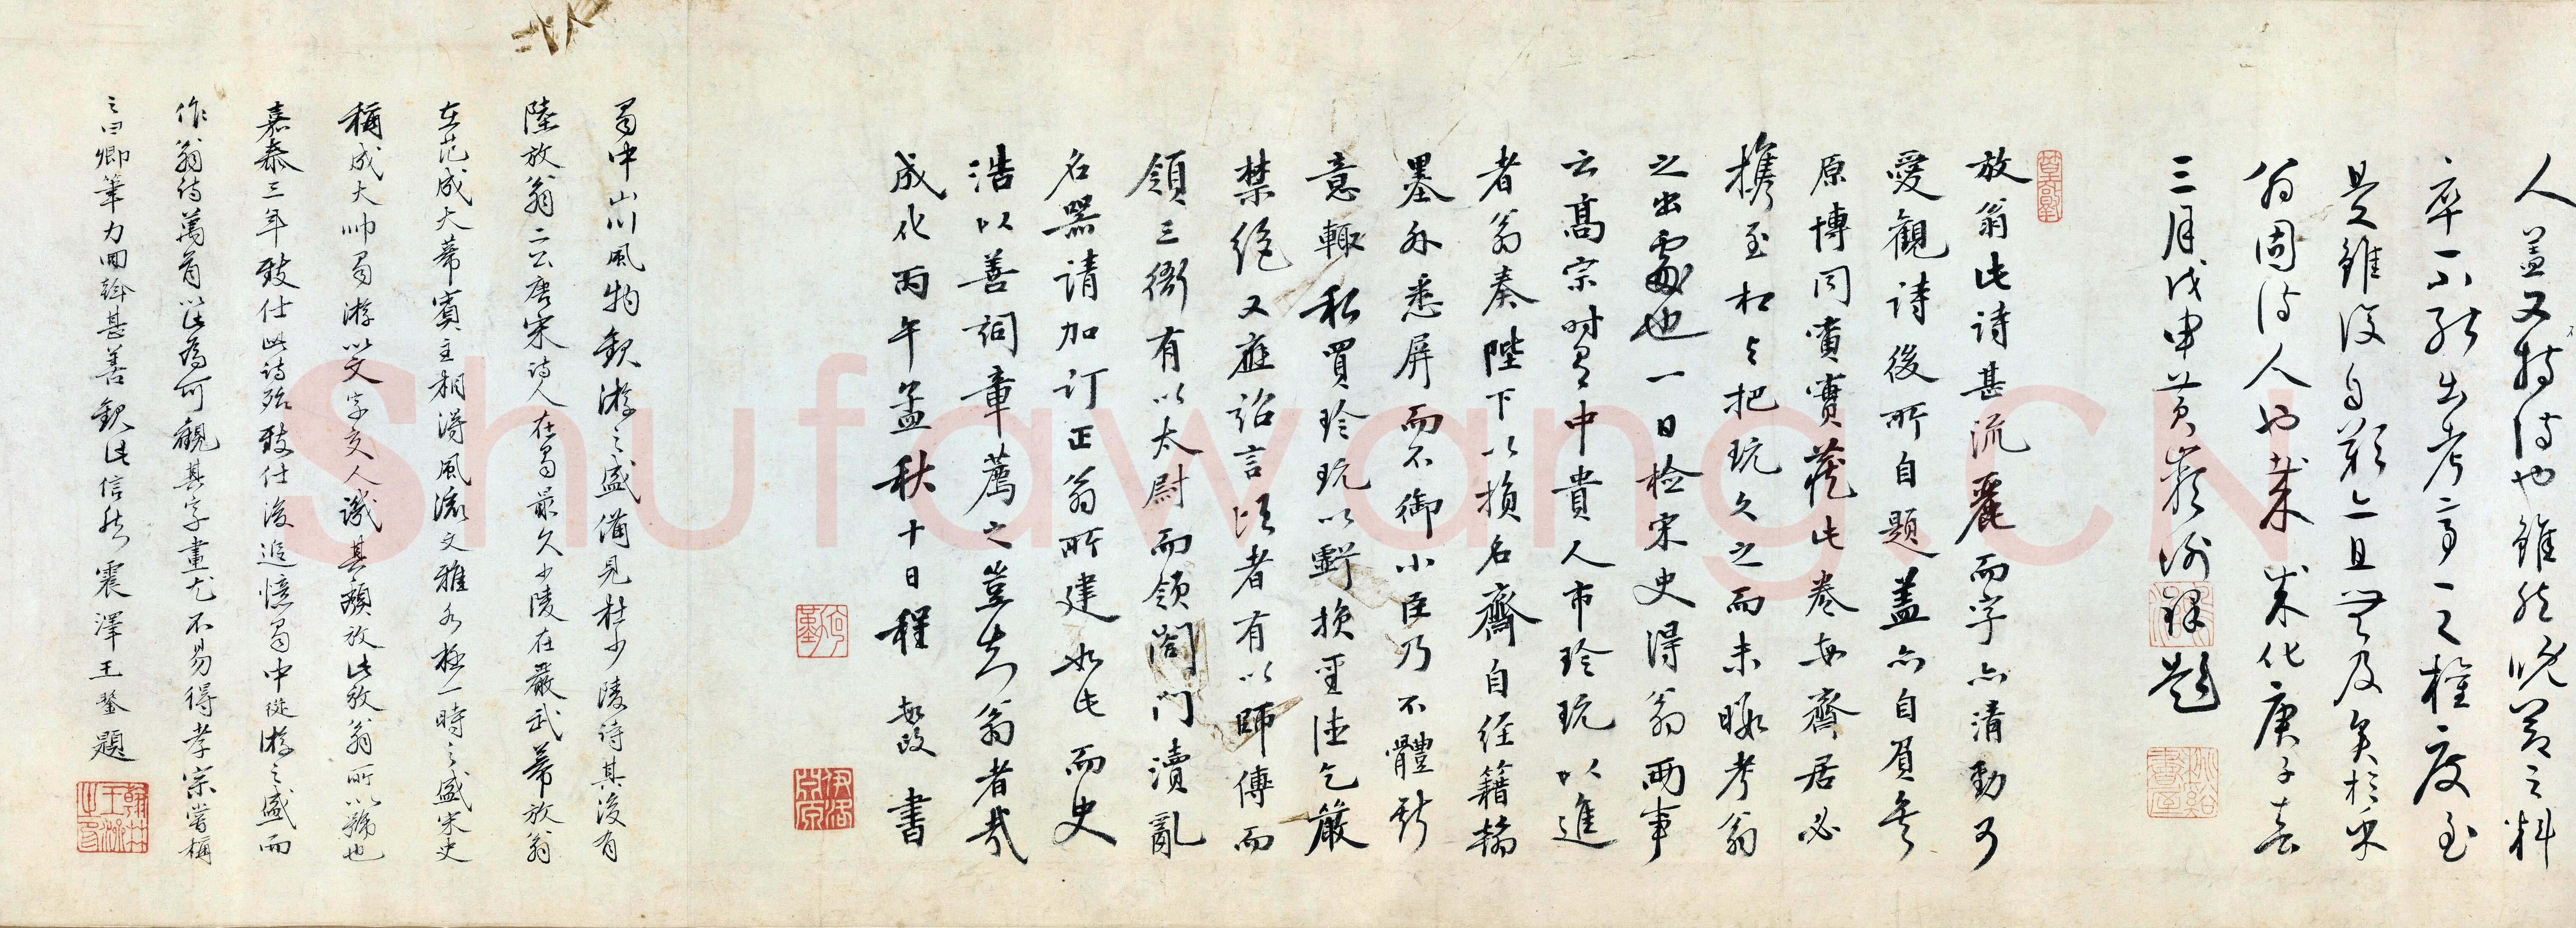 人蓋又特詩也雖然晚暮之料
卒不能出考亭之權度至
是雖復自歎亦且無及矣於乎
翁固詩人也哉成化庚子春
三月戊申莆歎謝鐸題
放翁此詩甚流麗而字亦清勁可
愛觀詩後所自題蓋亦自負矣
原博同寅寶藏此卷每齋居必
攜至相與把玩久之而未暇考翁
之出處也一日檢宋史得翁兩事
云高宗時有中貴人市珍玩以進
者翁奏陛下以損名齋自經籍翰
墨外悉屏而不御小臣乃不體聖
意輒私買珍玩以虧損聖德乞嚴
禁絕又應詔言頃者有以師傅而
領三衙有以太尉而領閤門瀆亂
名器請加訂正翁所建如此而史
浩以善詞章薦之豈知翁者哉
成化丙午孟秋十日程敏政書
蜀中山川風物觀游之盛備見杜少陵詩其後有
陸放翁云唐宋詩人在蜀最久少陵在嚴武幕放翁
在范成大幕賓主相得風流文雅各極一時之盛宋史
稱成大帥蜀游以文字交人譏其頹放此放翁所以號也
嘉泰三年致仕此詩殆致仕後追憶蜀中從游之盛而
作翁詩萬首以此為可觀其字畫尤不易得孝宗嘗稱
之曰卿筆力回斡甚善觀此信然震澤王鏊題
Shufawang.CN